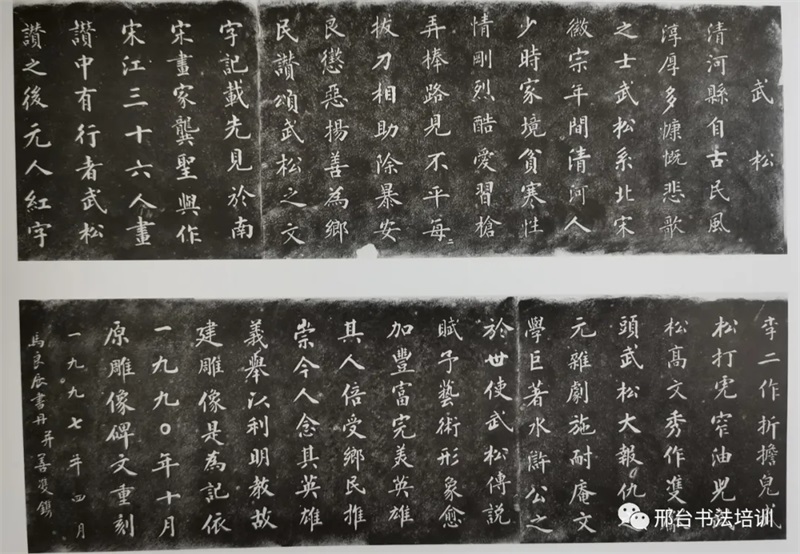 武松
清河縣自古民風
淳厚多慷慨悲歌
之士武松系北宋
徽宗年間清河人
少時家境貧寒性
情剛烈酷愛習槍
弄棒路見不平每
拔刀相助除暴安
良懲惡揚善為鄉
民讚頌武松之文
字記載先見於南
宋畫家龔聖與作
宋江三十六人畫
讚中有行者武松
讚之後元人紅字
李二作折擔兒武
松打虎窄油兒武
松高文秀作雙獻
頭武松大報仇
元雜劇施耐庵文
學巨著水滸公之
於世使武松傳說
賦予藝術形象愈
加豐富完美英雄
其人倍受鄉民推
崇今人念其英雄
義舉以利明教故
建雕像是為記依
一九九〇年十月
原雕像碑文重刻
一九九七年四月
馬良辰書丹
邢台书法培训